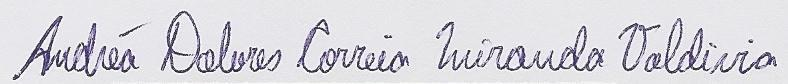 Andréa Dolores Correia Miranda Valdivia